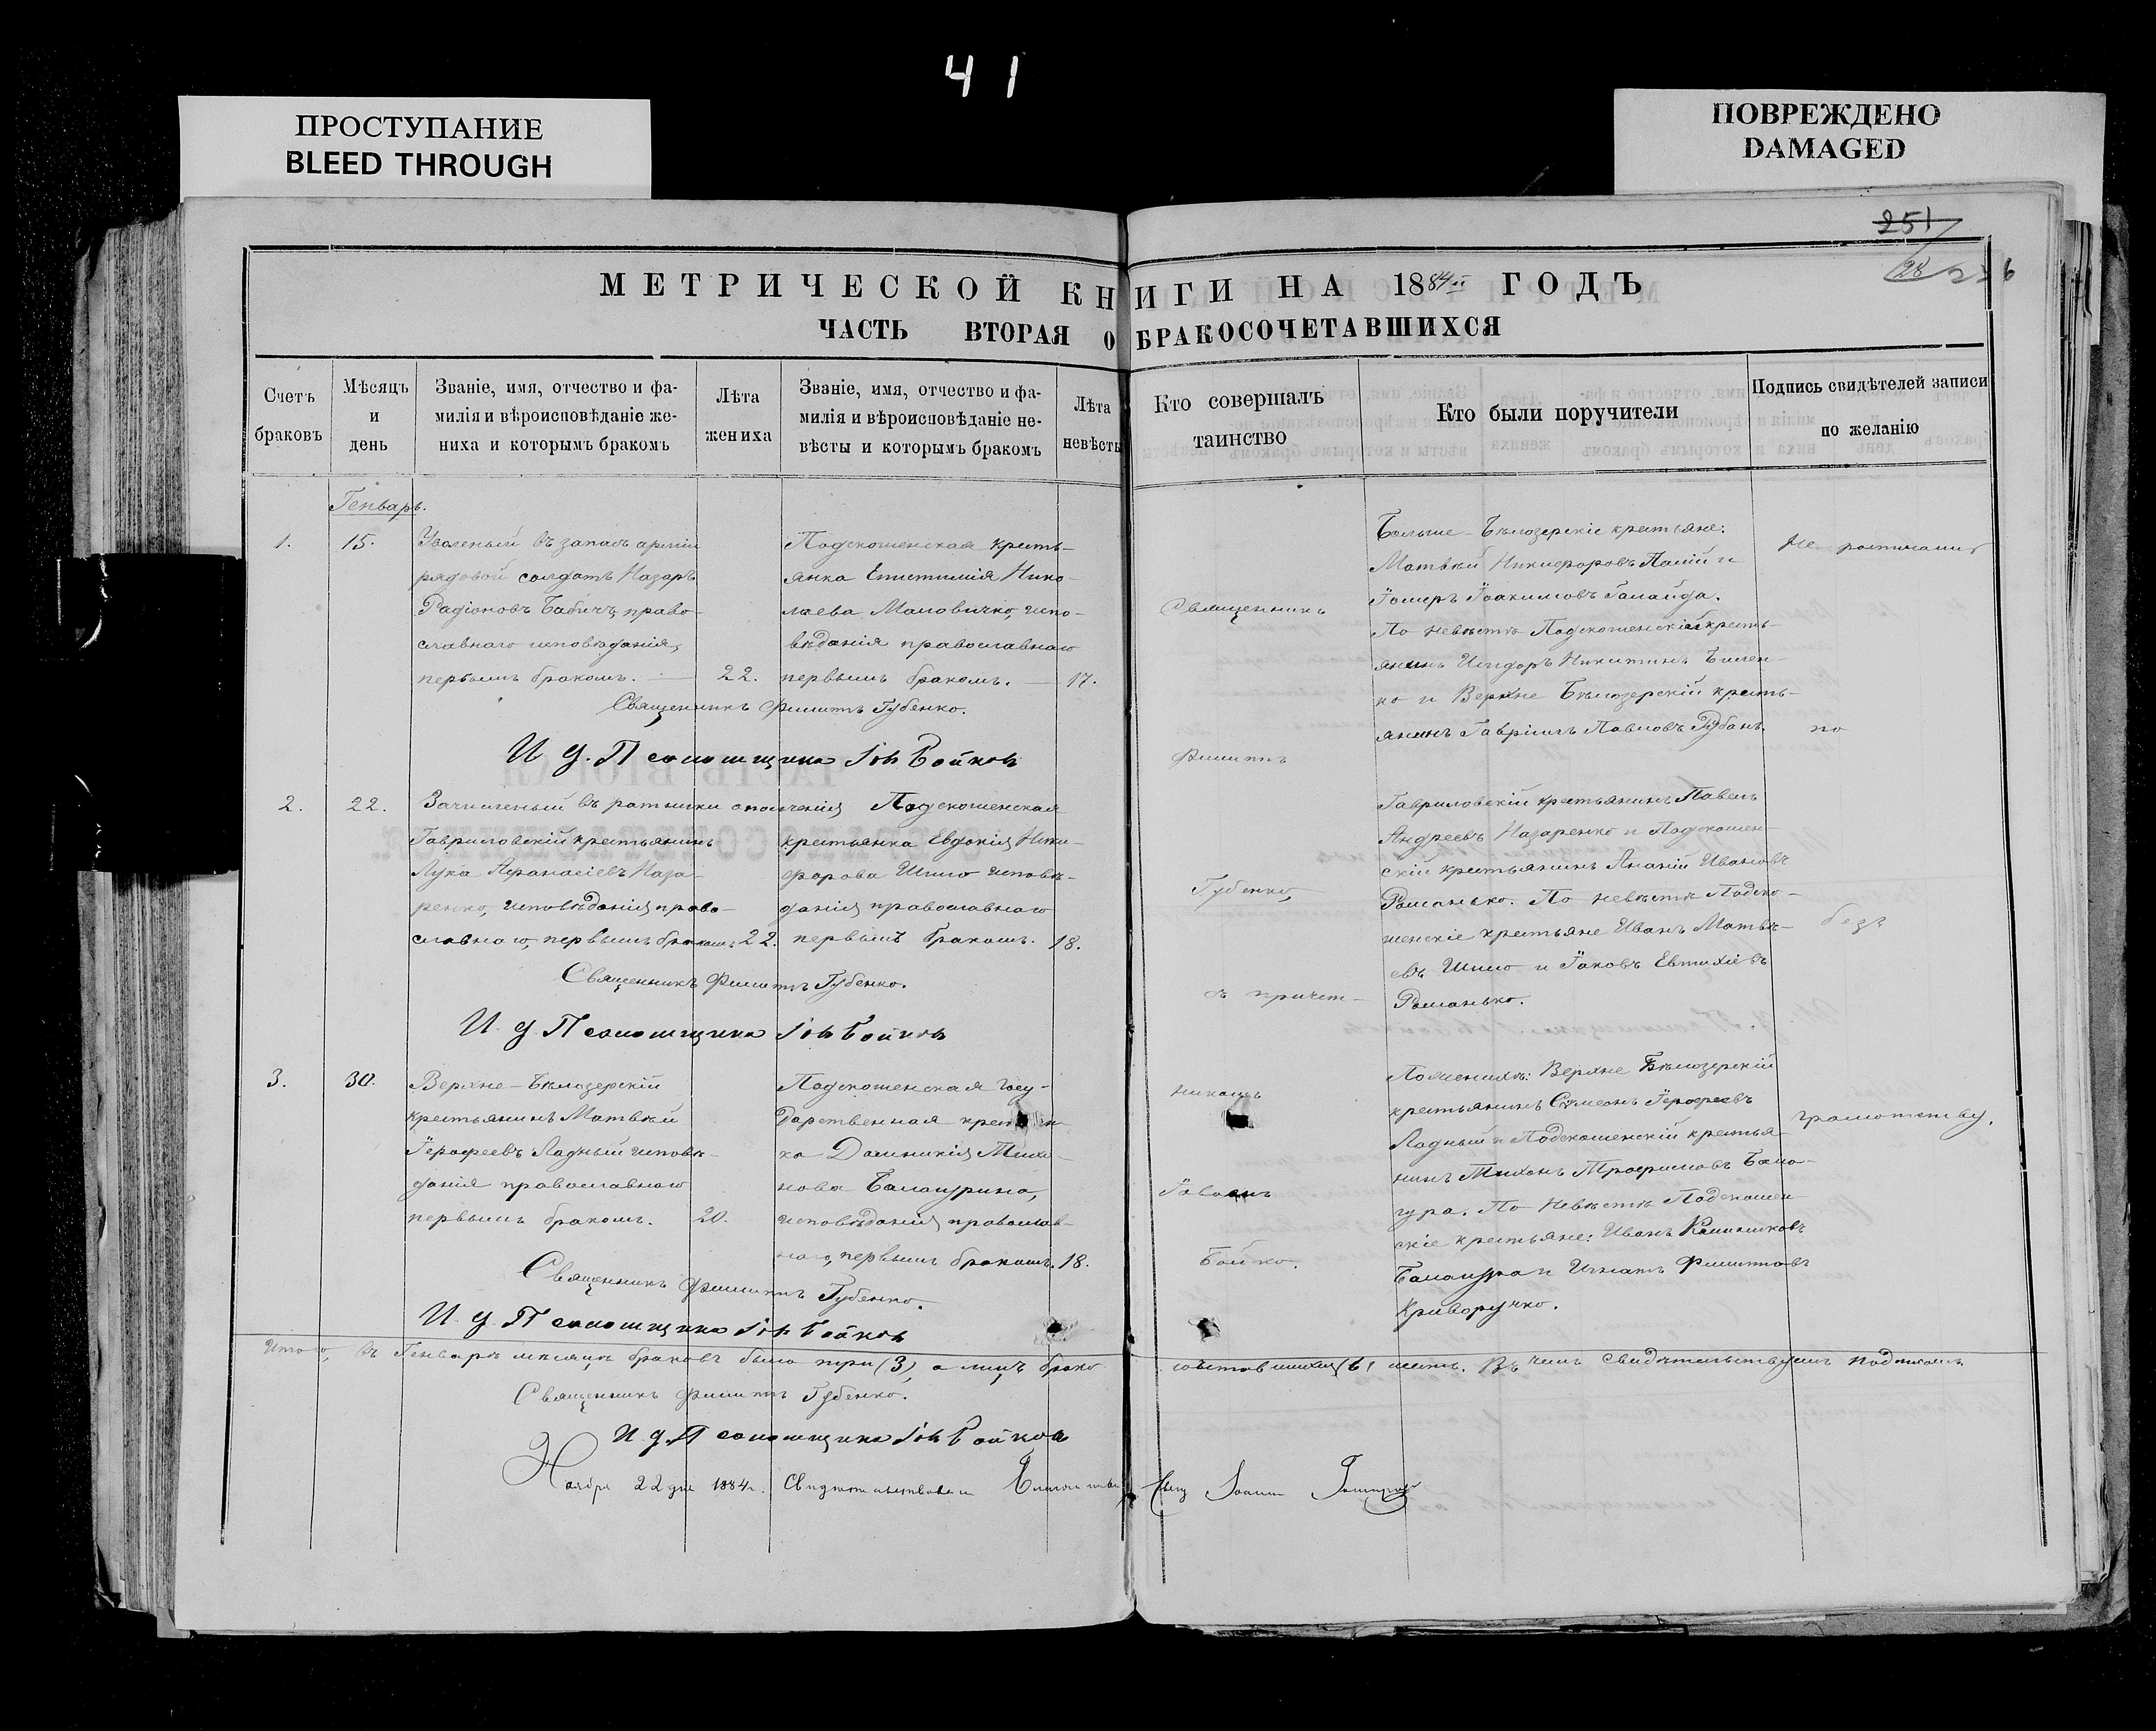 41
ПРОСТУПАНИЕ
BLEED THROUGH
ПОВРЕЖДЕНО
DAMAGED
251
28
МЕТРИЧЕСКОЙ КНИГИ НА 1884й ГОДЪ
ЧАСТЬ ВТОРАЯ О БРАКОСОЧЕТАВШИХСЯ
Счетъ
браковъ
Мѣсяцъ
и
день
Званіе, имя, отчество и фа-
милія и вѣроисповѣданіе же-
ниха и которымъ бракомъ
Лѣта
жениха
Званіе, имя, отчество и фа-
милія и вѣроисповѣданіе не-
вѣсты и которымъ бракомъ
Лѣта
невѣсты
Кто совершалъ
таинство
Кто были поручители
Подпись свидѣтелей записи
по желанію
Генварь.
1.
15.
Уволеный въ запасъ арміи
рядовой солдатъ Назаръ
Радіоновъ Бабичъ, право-
славнаго исповѣданія,
первымъ бракомъ.
22.
Подскошенская кресть-
янка Епистимія Нико-
лаева Маловичко, испо-
вѣданія православнаго
первымъ бракомъ.
17.
Священникъ Филиппъ Губенко.
И. д. Псаломщика Іовъ Бойко
Больше-Бѣлозерскіе крестьяне:
Матвѣй Никифоровъ Палій и
Іоакимовъ Галайда.
По невѣстѣ Подскошенскій кресть-
янинъ Исидоръ Никитинъ Билен-
ко и Верхне Бѣлозерскій кресть-
янинъ Гавріилъ Павловъ Рубанъ.
2.
22.
Зачисленый въ ратники ополченія
Гавриловскій крестьянинъ
Лука Афанасіевъ Наза-
ренко, исповѣданія право-
славнаго, первымъ бракомъ
22.
Подскошенская
крестьянка Евдокія Ники-
форова Шило исповѣ-
данія православнаго
первымъ бракомъ.
18.
Священникъ Филиппъ Губенко.
И. д. Псаломщика Іовъ Бойко
Гавриловскій крестьянинъ Павелъ
Андреевъ Назаренко и Подскошен-
скій крестьянинъ Ананій Ивановъ
Романько. По невѣстѣ Подско-
шенскіе крестьяне Иванъ Матвѣ-
евъ Шило и Іаковъ Евтихіевъ
Романько.
3.
30.
Верхне-Бѣлозерскій
крестьянинъ Матвѣй
Іерофеевъ Ладный исповѣ-
данія православнаго
первымъ бракомъ.
20.
Подскошенская госу-
дарственная крестьян-
ка Домникія Тихо-
нова Балацурина,
исповѣданія православ-
наго, первымъ бракомъ.
18.
Священникъ Филиппъ Губенко.
И. д. Псаломщика Іовъ Бойко
По женихѣ: Верхне Бѣлозерскій
крестьянинъ Сѵмеонъ Іерофеевъ
Ладный и Подскошенскій крестья-
нинъ Тихонъ Трофимовъ Бала-
цура. По невѣстѣ Подскошен-
скіе крестьяне: Иванъ Калиниковъ
Балацура и Игнатъ Филипповъ
Криворучко.
Священникъ
Филиппъ
Губенко,
съ причет-
никомъ
Іовомъ
Бойко.
Не росписались
по
безъ
грамотству.
Итого, въ Генварѣ мѣсяцѣ браковъ было три (3), а лицъ брако-
сочетавшихся (6) шесть. Въ чемъ свидѣтельствуемъ подписомъ
Священникъ Филиппъ Губенко.
И. д. Псаломщика Іовъ Бойко
Ноября 22 дня 1884 г. Свидѣтельствовалъ